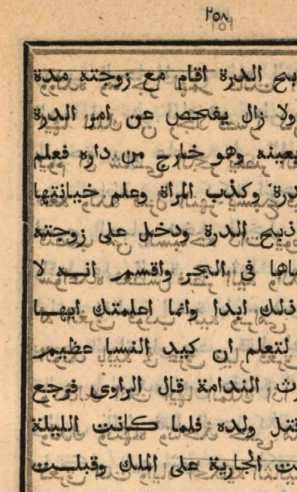 ٢٥٨
ذبح الدرة اقام مع زوجته مدة
ولا زال يفحص عن امر الدرة
بعينه وهو خارج من داره فعلم
وكذب المراة وعلم خيانتها
ذبح الدرة ودخل على زوجته
في البحر واقسم انه لا
ذلك ابدا وانما اعلمتك ايها
لتعلم ان كيد النسا عظيم
الندامة قال الراوى فرجع
قتل ولده فلما كانت الليلة
الجارية على الملك وقبلت